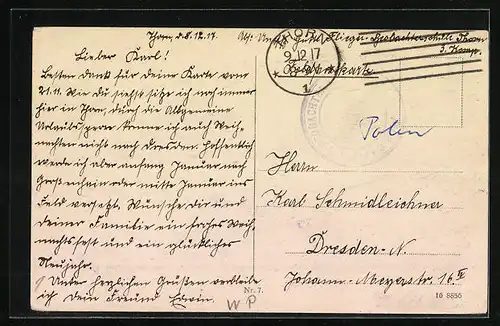 Thorn d. 8.12.17.
Lieber Karl!
Besten Dank für deine Karte vom
21.11. Wie du siehst sitze ich noch immer
hier in Thorn, durch die Allgemeine
Urlaubssperre komme ich auch Weih-
nachten nicht nach Dresden. Hoffentlich
werde ich aber anfang Januar nach
Großenhain oder mitte Januar ins
Feld versetzt. Wünsche dir und
deiner Familie ein frohes Weih-
nachtsfest und ein glückliches
Neujahr.
Unter herzlichen Grüßen verbleibe
ich Dein Freund Erwin.
Abs: Flieger-Beobachterschule Thorn
3. Komp.
THORN
9.12.17
1
Feldpostkarte
Polen
Herrn
Karl Schmidleichner
Dresden-N.
Johann-Meyerstr. 16 II
Nr. 7.
W P
16 8856